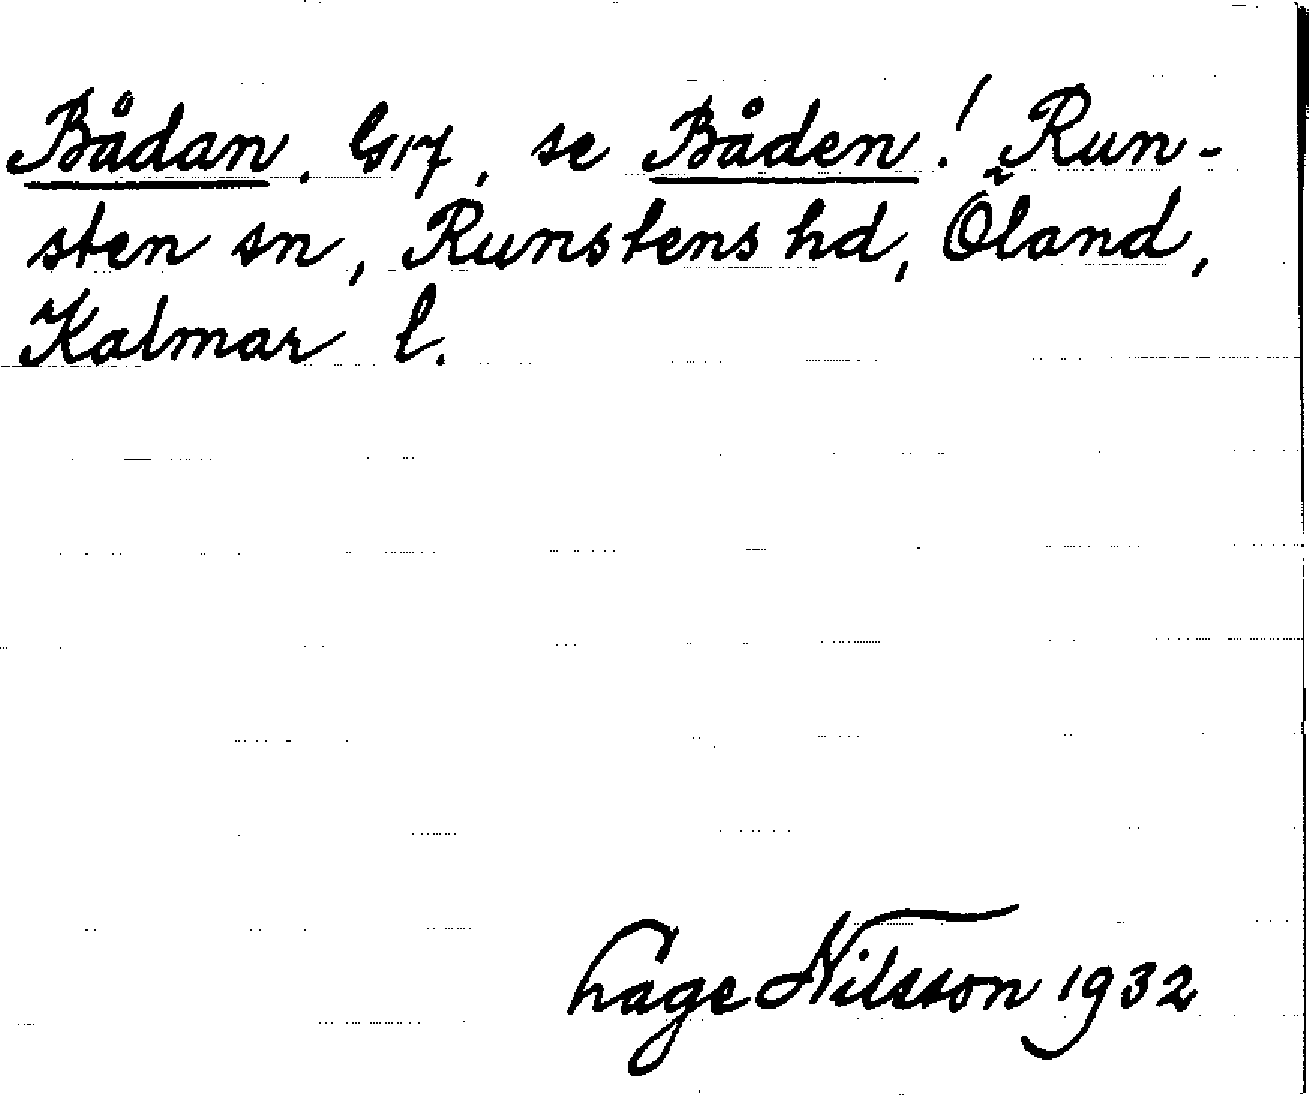 Bådan, G17, se Båden! Run-
sten sn, Runstens hd, Öland,
Kalmar l.
Hage Nilsson 1932